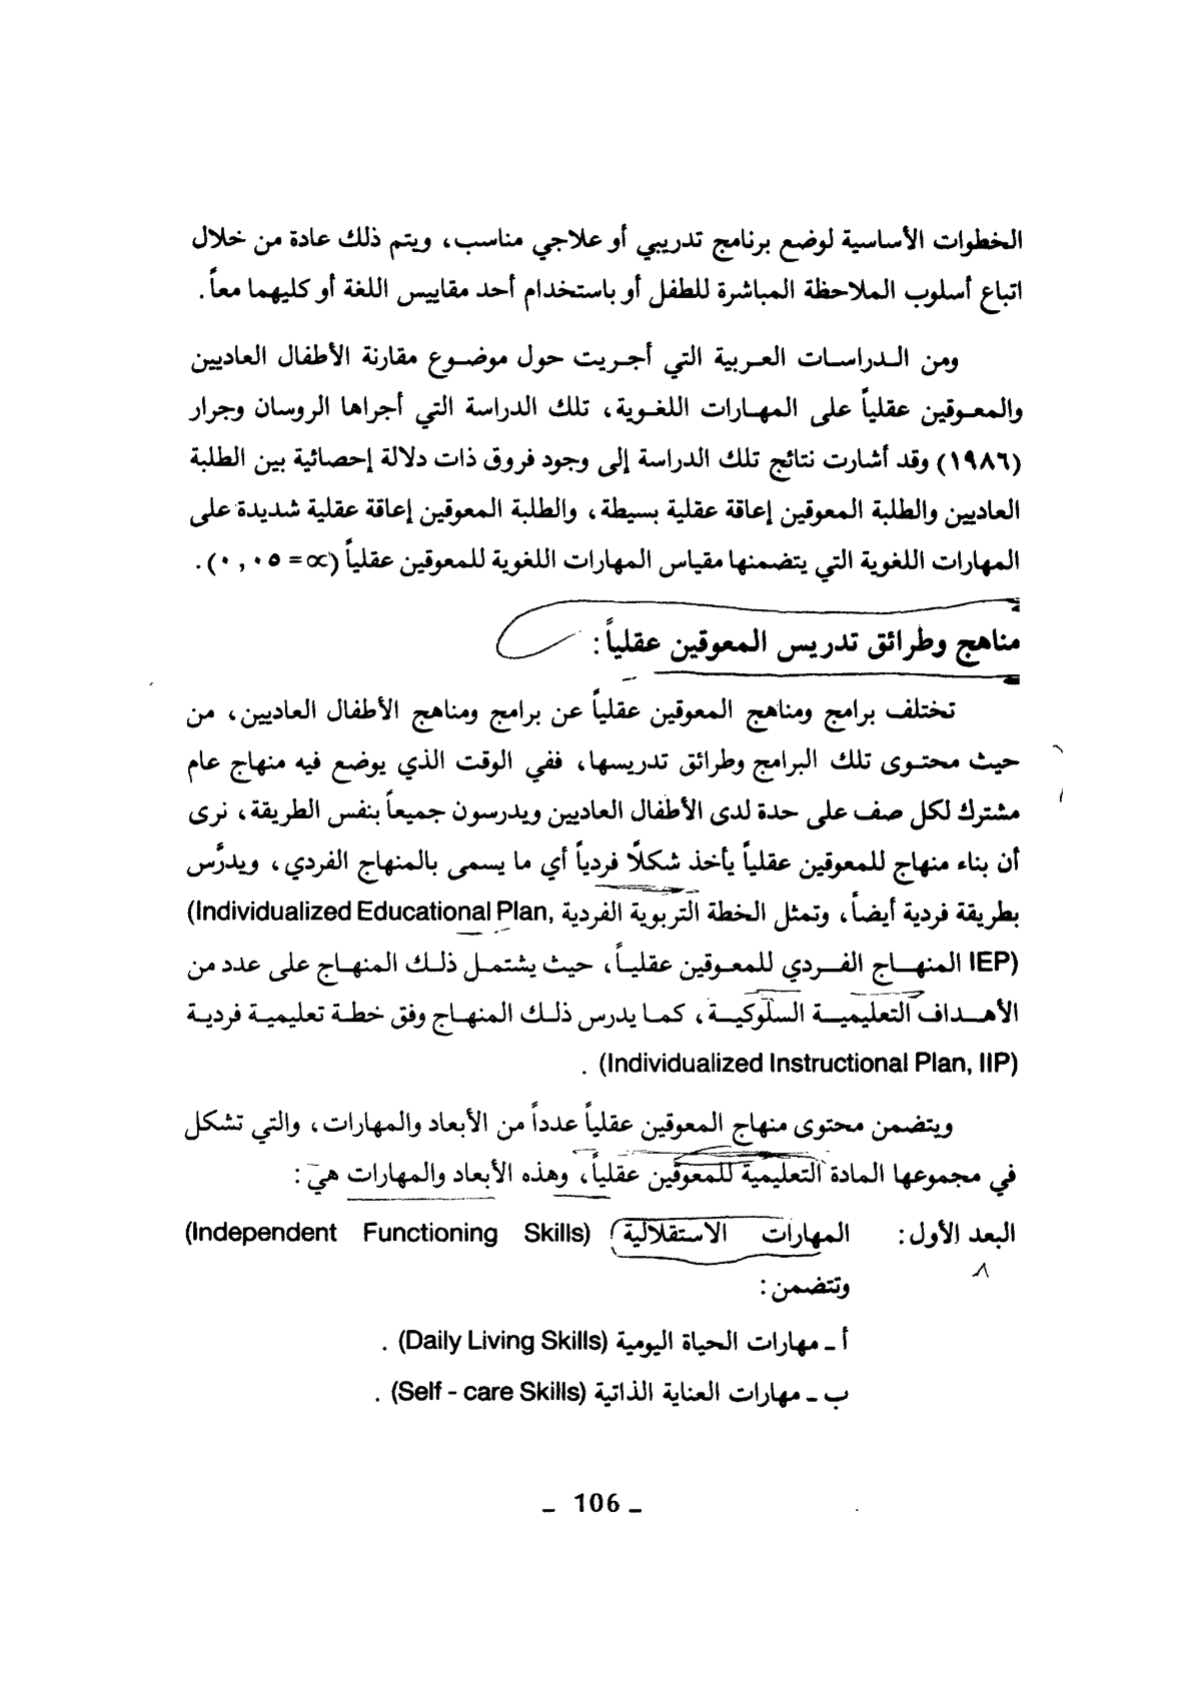 الخطوات الأساسية لوضع برنامج تدريبي أو علاجي مناسب، ويتم ذلك عادة من خلال
اتباع أسلوب الملاحظة المباشرة للطفل أو باستخدام أحد مقاييس اللغة أو كليهما معاً.
ومن الدراسات العربية التي أجريت حول موضوع مقارنة الأطفال العاديين
والمعوقين عقلياً على المهارات اللغوية، تلك الدراسة التي أجراها الروسان وجرار
(١٩٨٦) وقد أشارت نتائج تلك الدراسة إلى وجود فروق ذات دلالة إحصائية بين الطلبة
العاديين والطلبة المعوقين إعاقة عقلية بسيطة، والطلبة المعوقين إعاقة عقلية شديدة على
المهارات اللغوية التي يتضمنها مقياس المهارات اللغوية للمعوقين عقلياً (∝ = ٠,٠٥).
مناهج وطرائق تدريس المعوقين عقلياً:
تختلف برامج ومناهج المعوقين عقلياً عن برامج ومناهج الأطفال العاديين، من
حيث محتوى تلك البرامج وطرائق تدريسها، ففي الوقت الذي يوضع فيه منهاج عام
مشترك لكل صف على حدة لدى الأطفال العاديين ويدرسون جميعاً بنفس الطريقة، نرى
أن بناء منهاج للمعوقين عقلياً يأخذ شكلاً فردياً أي ما يسمى بالمنهاج الفردي، ويدرَّس
بطريقة فردية أيضاً، وتمثل الخطة التربوية الفردية (Individualized Educational Plan,
IEP) المنهاج الفردي للمعوقين عقلياً، حيث يشتمل ذلك المنهاج على عدد من
الأهداف التعليمية السلوكية، كما يدرس ذلك المنهاج وفق خطة تعليمية فردية
(Individualized Instructional Plan, IIP) .
ويتضمن محتوى منهاج المعوقين عقلياً عدداً من الأبعاد والمهارات، والتي تشكل
في مجموعها المادة التعليمية للمعوقين عقلياً، وهذه الأبعاد والمهارات هي:
البعد الأول: المهارات الاستقلالية (Independent Functioning Skills)
وتتضمن:
أ ـ مهارات الحياة اليومية (Daily Living Skills) .
ب ـ مهارات العناية الذاتية (Self - care Skills) .
_ 106 _